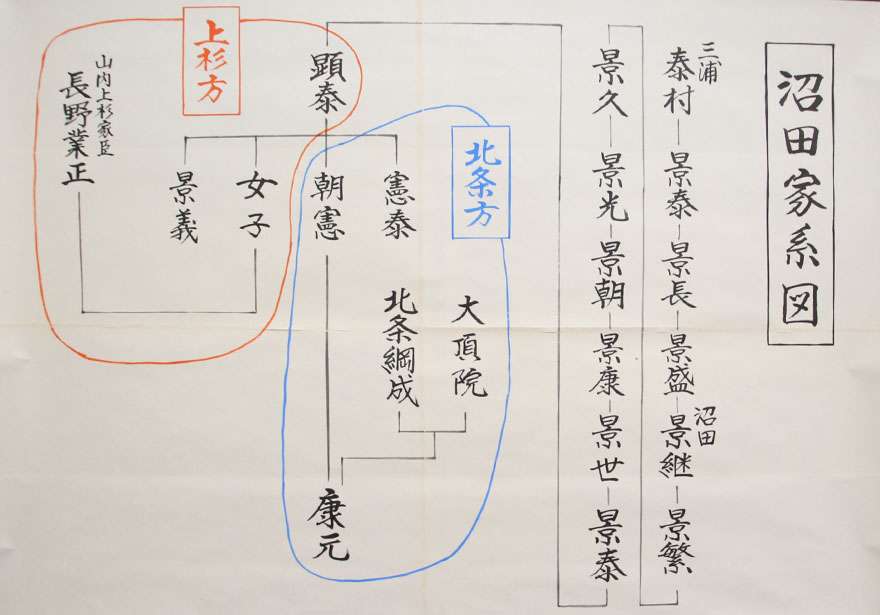 沼田家系図
三浦
泰村
景泰
景長
景盛
沼田
景継
景繁
景久
景光
景朝
景康
景世
景泰
顕泰
北条方
憲泰
朝憲
大頂院
北条綱成
康元
上杉方
女子
景義
山内上杉家臣
長野業正